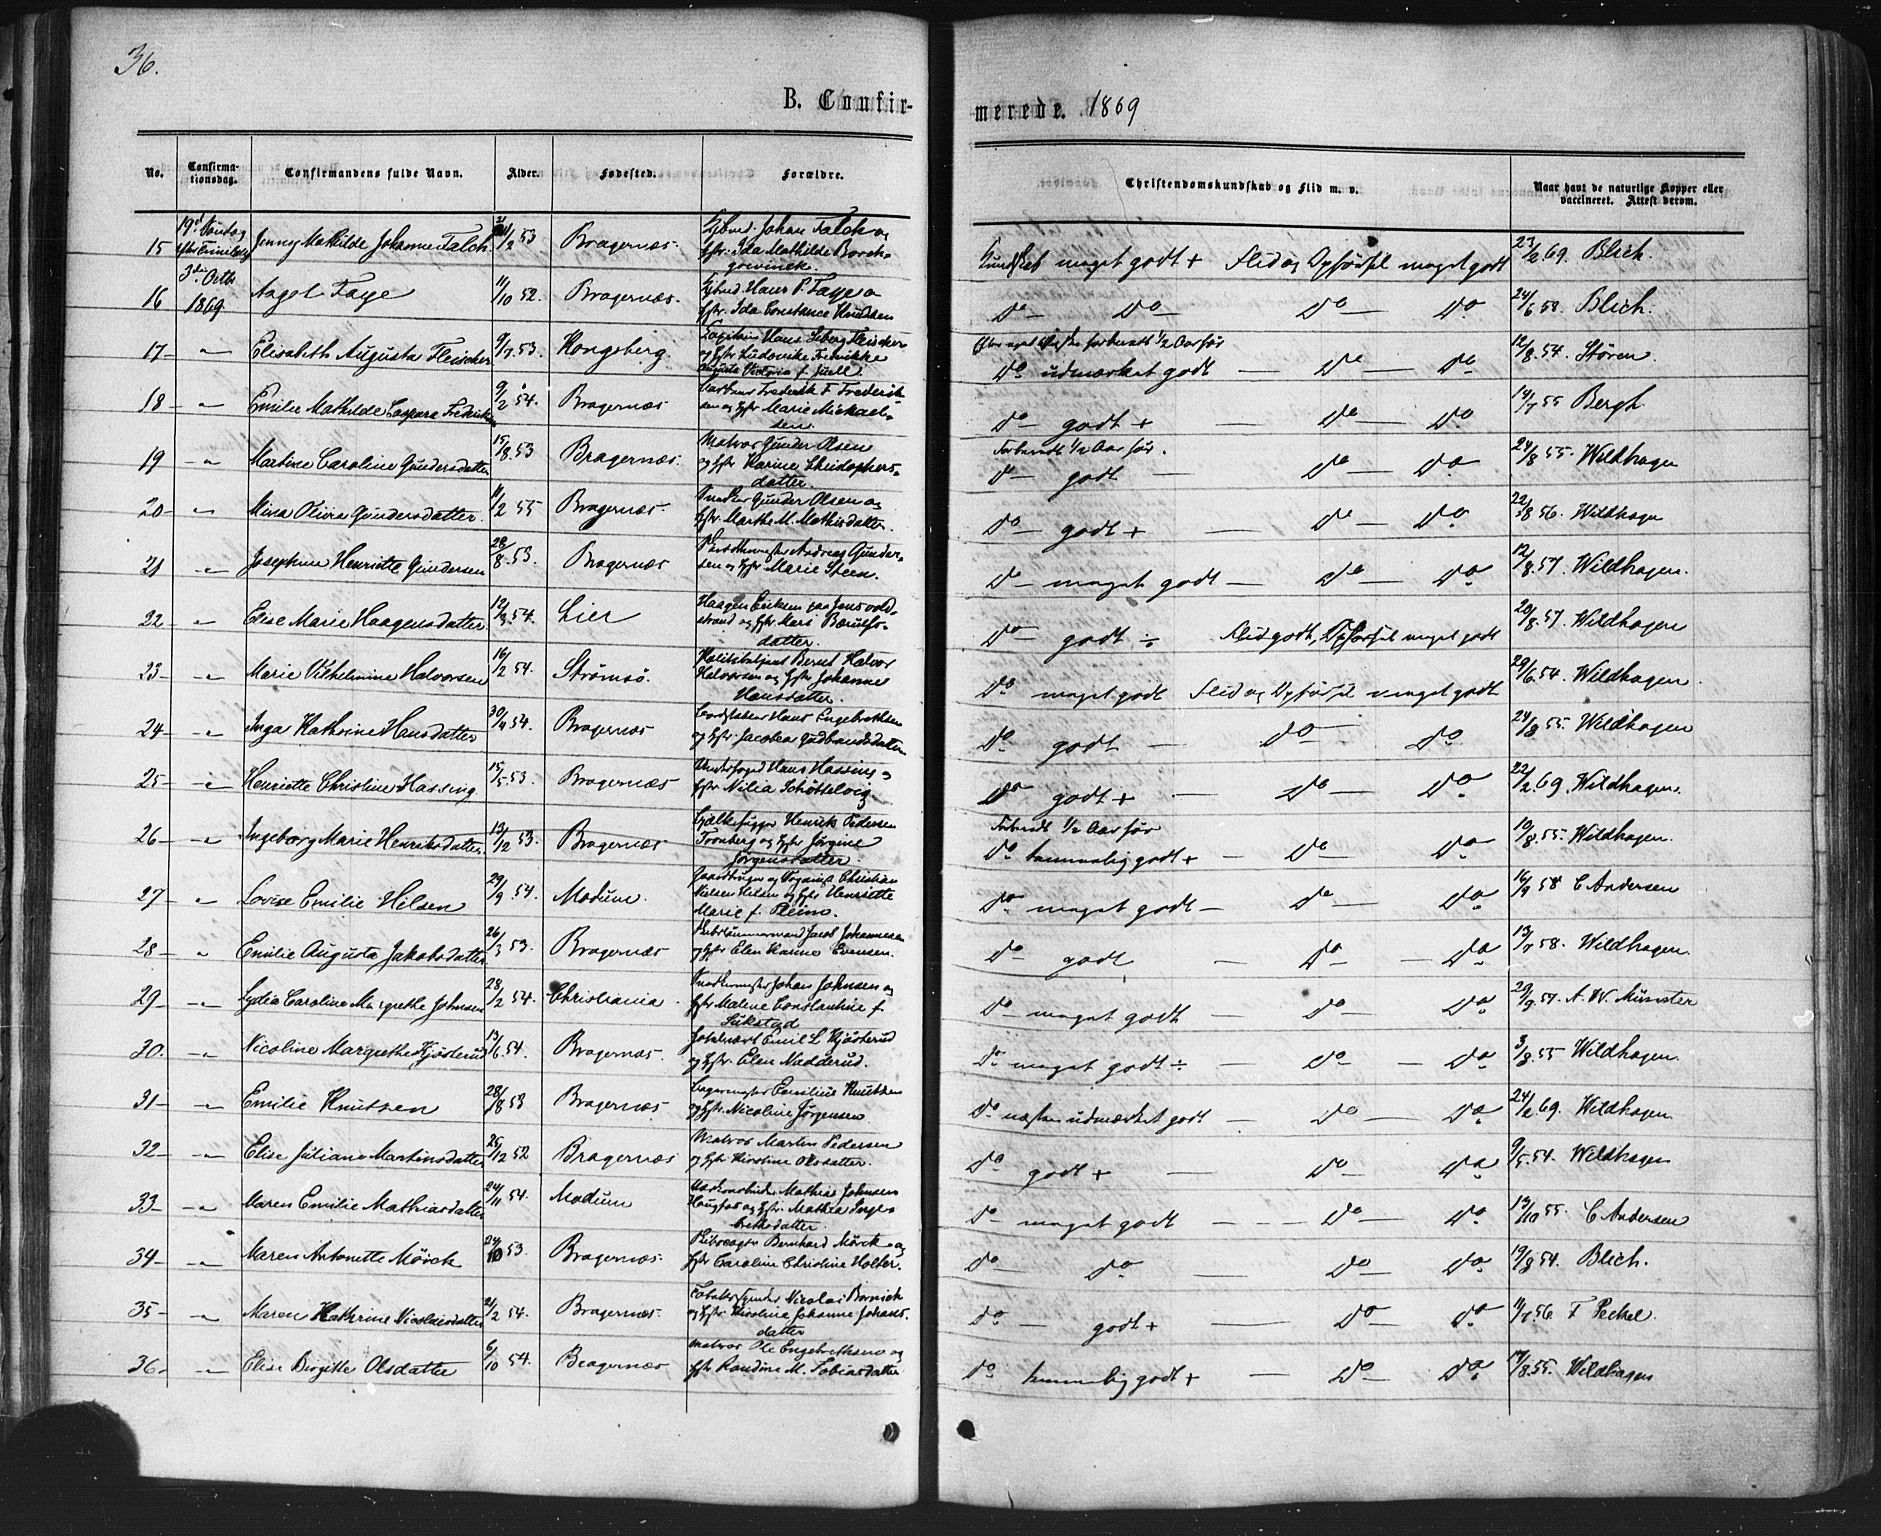 36.
B. Confirmerede. 1869
No. Confirmationsdag. Confirmandens fulde Navn. Alder. Fødested. Forældre. Christendomskundskab og Flid m. v. Naar havt de naturlige Kopper eller vaccineret. Attest derom.
15 19d Søndag Jenny Mathilde Johanne Falch 21/2 53 Bragernæs. Kjbmd. Johan Falch og Hstr. Ida Mathilde Borchgrevinck. Kundskab meget godt + Flid og Opførsel meget godt 23/2 69. Blich.
3die Octb. 1869.
16 Aagot Faye 11/10 52. Bragernæs. Kjbmd Hans P. Faye o Hstr. Ida Constance Knudsen Do Do Do Do 24/6 58. Blich.
17 – " Elisabeth Augusta Fleischer 9/7 53. Kongsberg. Capitain Hans Fleischer og Hstr Ludovike Fredrikke Augusta Victoria f. Juell. forberedt 1/2 Aar før Do udmærket godt — Do — Do 12/8. 54. Støren.
18 – " Emilie Mathilde Caspara Fredriksen 9/2 54. Bragernæs Frederik F Frederiksen og Hstr Marie Mickaelsen. Do godt + — Do Do 14/7 55 Bergh.
19 – " Martine Caroline Gundersdatter 15/8. 53 Bragernæs. Matros Gunder Olsen og Hstr Karine Christophersdatter. Forberedt 1/2 Aar før. Do godt — Do — Do 24/8 55. Wildhagen
20 – " Mina Olivia Gundersdatter. 11/2 55 Bragernæs. Snedker Gunder Olsen og Hstr. Marthe M. Mathisdatter. Do godt + — Do — Do 22/8 56. Wildhagen
21 " Josephine Henriette Gundersen 28/8. 53. Bragernæs Andreas Gundersen og Hstr Marie Steen. Do meget godt — Do — Do 12/8. 57. Wildhagen.
22 – " Elise Marie Haagensdatter. 12/3. 54. Lier Haagen Eriksen paa Jensvoldstrand og Hstr Mari Bærulfsdatter. Do godt ÷ Flid godt, Opførsel meget godt 20/8. 57. Wildhagen
23 – " Marie Vilhelmine Halvorsen 16/2 54. Strømsø. Politibetjent Bernt Halvor Halvorsen og Hstr Johanne Hansdatter. Do meget godt Flid og Opførsel meget godt 29/6. 54. Wildhagen.
24 – " Inga Kathrine Hansdatter 30/4 54. Bragernæs Hans Engebrethsen og Hstr. Jacobea Gudbrandsdatter Do godt — Do — Do 24/8 55. Wildhagen
25 – " Henriette Christine Hassing. 15/5. 53. Bragernæs Underfoged Hans Hassing og Hstr Nilia Schøttelvig Do godt + — Do — Do 22/2. 69. Wildhagen.
26 – " Ingeborg Marie Henriksdatter. 13/12 53. Bragernæs Henrik Pedersen Tronberg og Hstr Jørgine Jørgensdatter. Forberedt 1/2 Aar før Do temmelig godt + — Do — Do 10/8. 55. Wildhagen.
27 – " Lovise Emilie Hilsen 29/9. 54. Modum. Gaardbruger og Organist Christian Nielsen Hilsen og Hstr Henriette Marie f. Pleim. Do meget godt — Do — Do 16/9 58 C Andersen
28 – " Emilie Augusta Jakobsdatter 26/3 53. Bragernæs Jacob Johannesen og Hstr Elen Hanne Evensen. Do godt — Do — Do 13/7 58. Wildhagen
29 – " Lydia Caroline Margrethe Johnsen 28/2 54. Christiania. Johan Johnsen og Hstr Malene Constantine f. Sukstad Do meget godt — Do — Do 29/9. 57. A. W. Münster
30. – " Nicoline Margrethe Kjøsterud 13/6. 54. Bragernæs. Emil L Kjøsterud og Hstr. Elen Nedderud. Do meget godt ÷ — Do — Do 3/8. 55 Wildhagen.
31 – " Emilie Knutsen 28/8 53 Bragernæs Emilius Knutsen og Hstr. Nicoline Jørgensen Do næsten udmærket godt — Do — Do 24/2. 69. Wildhagen
32 – " Elise Juliane Martinsdatter 25/12 52 Bragernæs Matros Martin Pedersen og Hstr Kirstine Olsdatter. Do godt + — Do — Do 9/5. 54. Wildhagen
33 – " Maren Emilie Mathiasdatter 24/11 54. Modum Mathias Johnsen Haugfos og Hstr. Mathea Ingebretsdatter. Do meget godt — Do — Do 13/10 55. C Andersen
34 – " Maren Antonette Mörck 24/10 53. Bragernæs. Bernhard Mörck og Hstr Caroline Christine Holter. Do Do — Do — Do 19/8 54. Blich.
35 – " Maren Kathrine Nicolaisdatter 21/2 54. Bragernæs. Nicolai Bernick og Hstr Kirstine Johanne Johansdatter Do — godt + — Do — Do 11/7. 56. F Peckel.
36 – " Elise Birgitte Olsdatter 6/10 54. Bragernæs Matros Ole Engebrethsen og Hstr Randine M. Tobiasdatter Do temmelig godt + — Do — Do 17/8. 55. Wildhagen